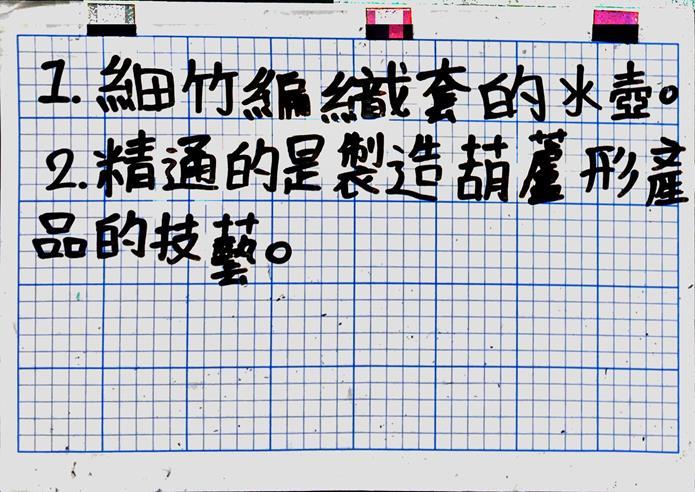 1. 細竹編織套的水壺。
2. 精通的是製造葫蘆形產
品的技藝。